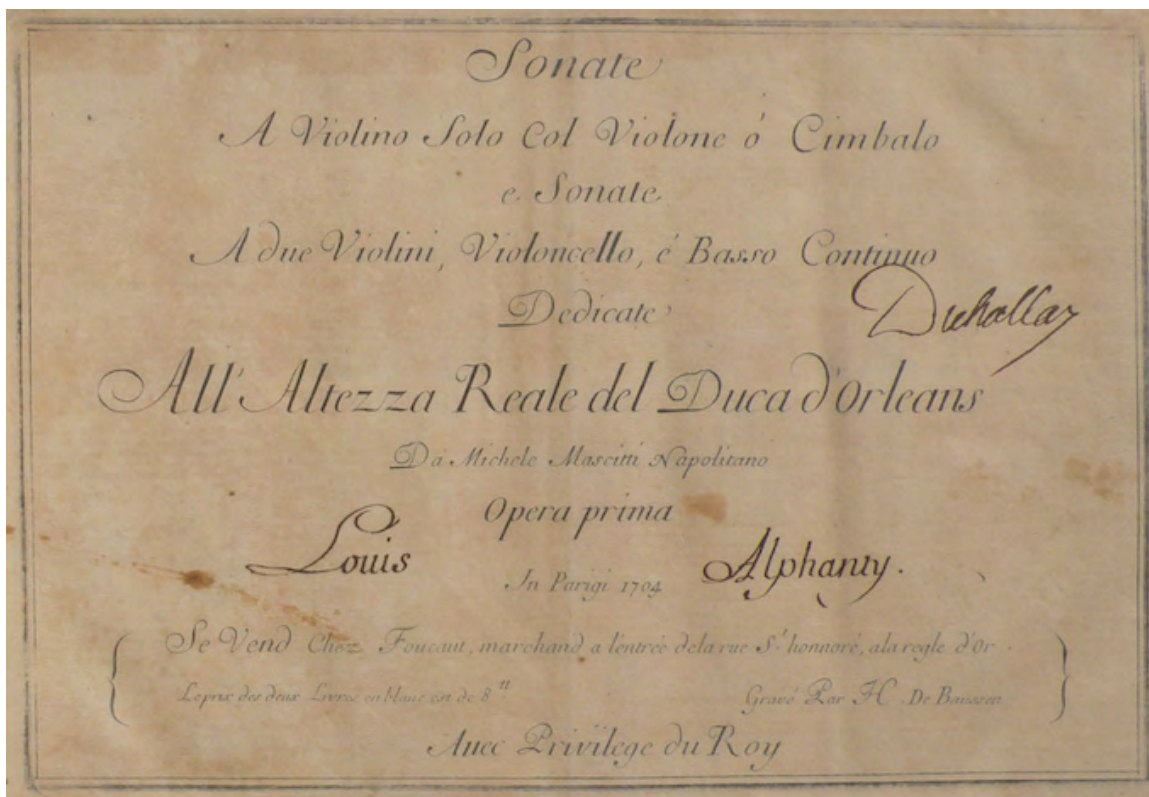 Sonate
A Violino Solo Col Violone ó Cimbalo
e Sonate
A due Violini, Violoncello, é Basso Continuo
Dedicate
Duhallay
All' Altezza Reale del Duca d'Orleans
Da Michele Mascitti Napolitano
Opera prima
Louis Alphanty.
In Parigi 1704
Se Vend Chez Foucaut, marchand a l'entrée dela rue St. honnoré, ala regle d'Or.
Le prix des deux Livres en blanc est de 8tt Gravé Par H. De Baussen
Avec Privilege du Roy